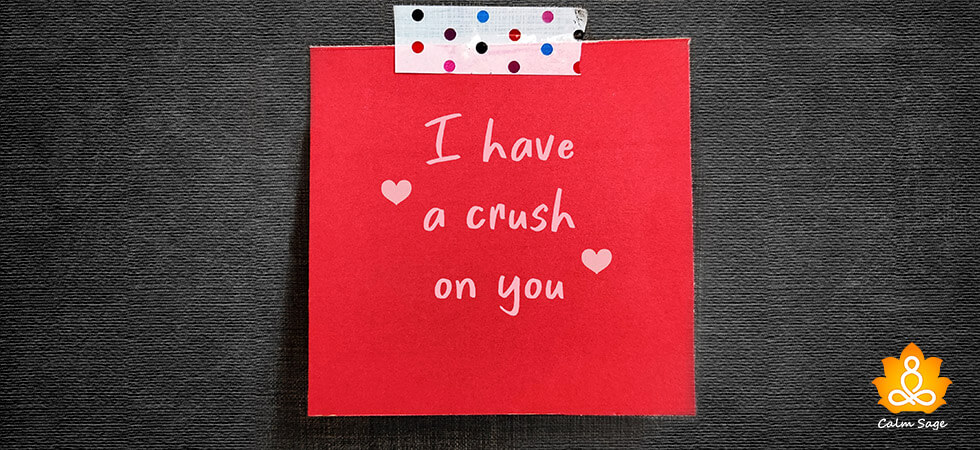 I have
a crush
on you
Calm Sage